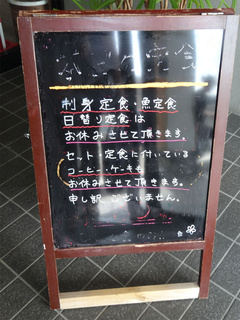 刺身定食・魚定食
日替り定食は
お休みさせて頂きます。
セット・定食に付いている
コーヒー・ケーキも
お休みさせて頂きます。
申し訳ございません。